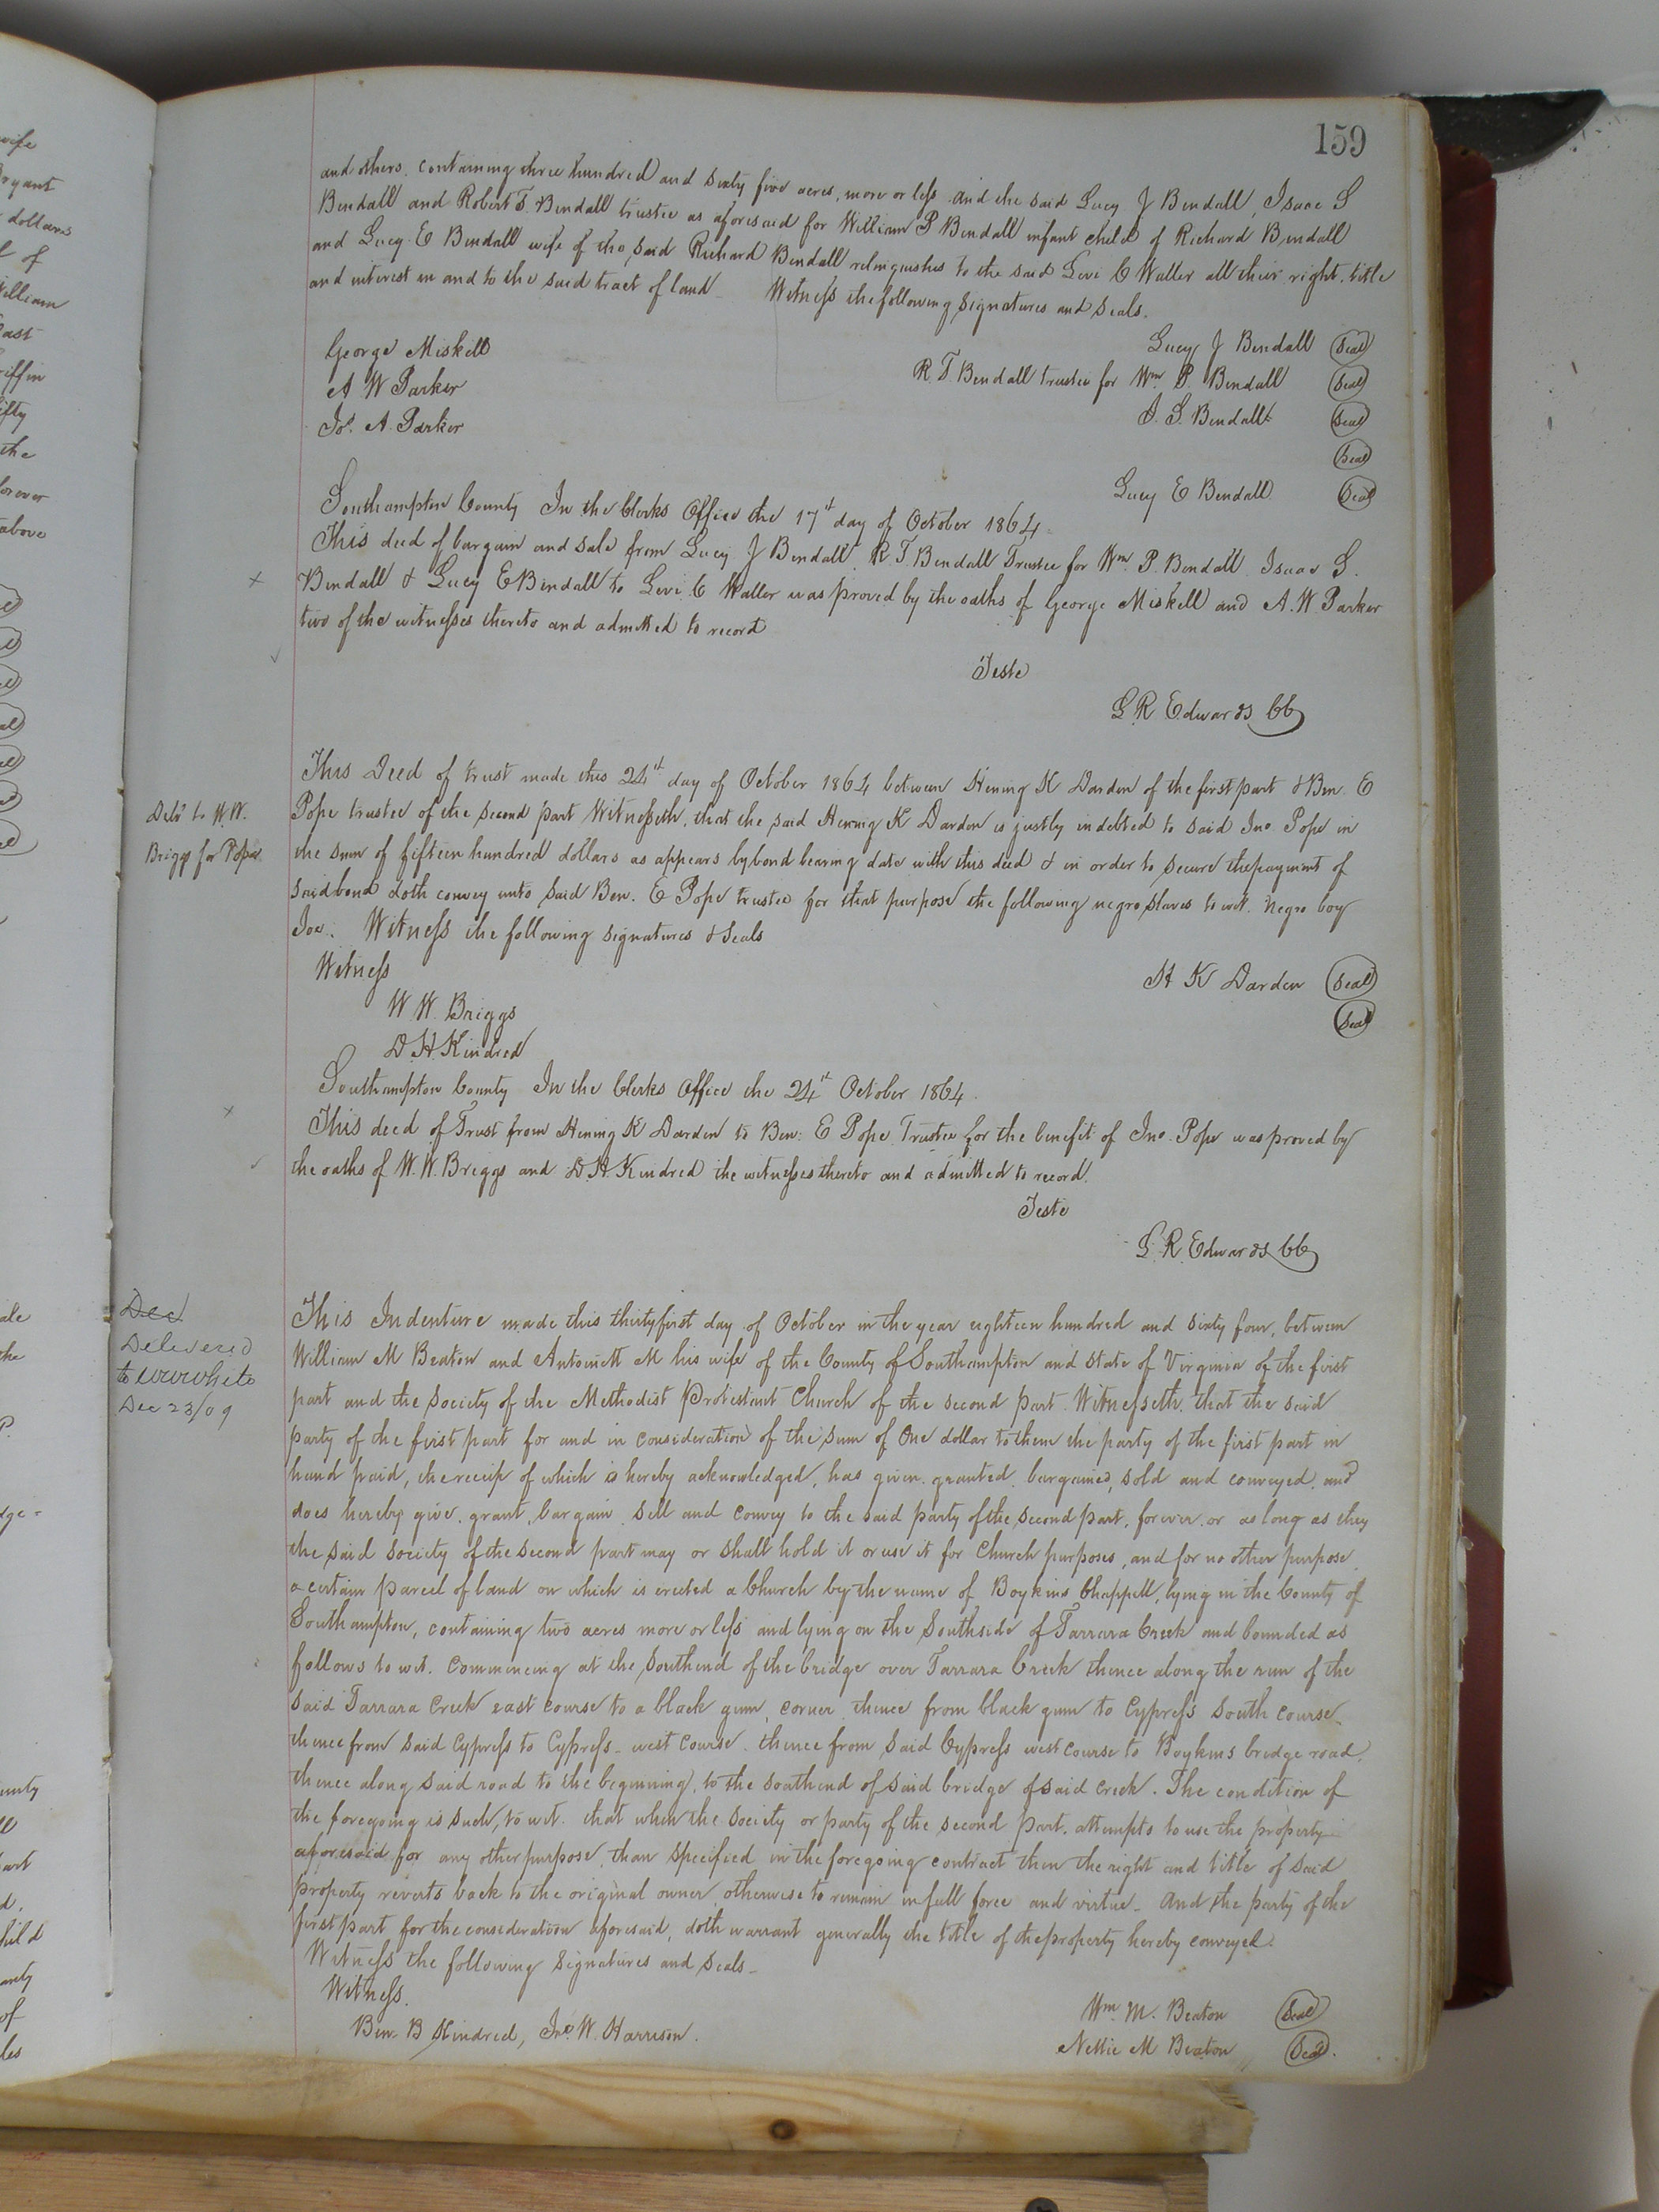 159
and others. containing three hundred and sixty five acres, more or less and the said Lucy J Bendall, Isaac S
Bendall and Robert T. Bendall trustee as aforesaid for William P Bendall infant child of Richard Bendall
and Lucy E Bendall wife of the said Richard Bendall relinquishes to the said Levi C Waller all their right, title
and interest in and to the said tract of land Witness the following signatures and seals.
George Miskell Lucy J Bendall Seal
A W Parker R. T. Bendall trustee for Wm. P. Bendall Seal
Jos. A. Parker I. S. Bendall Seal
Seal
Lucy E Bendall Seal
Southampton County In the Clerks Office the 17th day of October 1864.
This deed of bargain and sale from Lucy J Bendall, R. T. Bendall Trustee for Wm. P. Bendall. Isaac S.
x Bendall & Lucy E Bendall to Levi. C Waller was proved by the oaths of George Miskell and A. W Parker
two of the witnesses thereto and admitted to record
Teste
L R Edwards CC
This Deed of trust made this 24th day of October 1864 between Hening K Darden of the first part & Ben. E
Deld to W. W.
Pope trustee of the second part Witnesseth, that the said Hening K Darden is justly indebted to said Jno. Pope in
Briggs for Pope
the sum of fifteen hundred dollars as appears by bond bearing date with this deed & in order to secure the payment of
said bond doth convey unto said Ben. E Pope trustee for that purpose the following negro slaves to wit. Negro boy
Joe. Witness the following signatures & seals
Witness H K Darden Seal
W W. Briggs Seal
D. H. Kindred
Southampton County In the Clerks Office the 24th October 1864.
x
This deed of Trust from Hening K Darden to Ben: E Pope, Trustee for the benefit of Jno. Pope was proved by
the oaths of W. W. Briggs and D. H. Kindred the witnesses thereto and admitted to record.
Teste
L. R. Edwards CC
Dec
Delivered
to W W White
Dec 23/09
This Indenture made this thirtyfirst day of October in the year eighteen hundred and sixty four, between
William M Beaton and Antoinett M his wife of the County of Southampton and State of Virginia of the first
part and the Society of the Methodist Protestant Church of the second part. Witnesseth. that the said
party of the first part for and in consideration of the sum of One dollar to them the party of the first part in
hand paid, the receip of which is hereby acknowledged, has given. granted. bargained, sold and conveyed. and
does hereby give. grant, bargain sell and convey to the said party of the second part, forever. or as long as they
the said society of the second part may or shall hold it or use it for Church purposes, and for no other purpose
a certain parcel of land on which is erected a Church by the name of Boykins Chappell, lying in the County of
Southampton, containing two acres more or less and lying on the Southside of Tarrara Creek and bounded as
follows to wit. Commencing at the Southend of the bridge over Tarrara Creek thence along the run of the
said Tarrara Creek east course to a black gum, corner, thence from black gum to Cypress South course.
thence from said Cypress to Cypress - west course. thence from said Cypress west course to Boykins bridge road,
thence along said road to the beginning, to the southend of said bridge of said creek. The condition of
the foregoing is such, to wit. that when the Society or party of the second part. attempts to use the property
aforesaid for any other purpose, than specified in the foregoing contract then the right and title of said
property reverts back to the original owner otherwise to remain in full force and virtue - And the party of the
first part for the consideration aforesaid, doth warrant generally the title of the property hereby conveyed.
Witness the following signatures and seals -
Witness.
Ben. B Kindred, Jno. W. Harrison. Wm. M. Beaton Seal
Nettie M Beaton Seal.